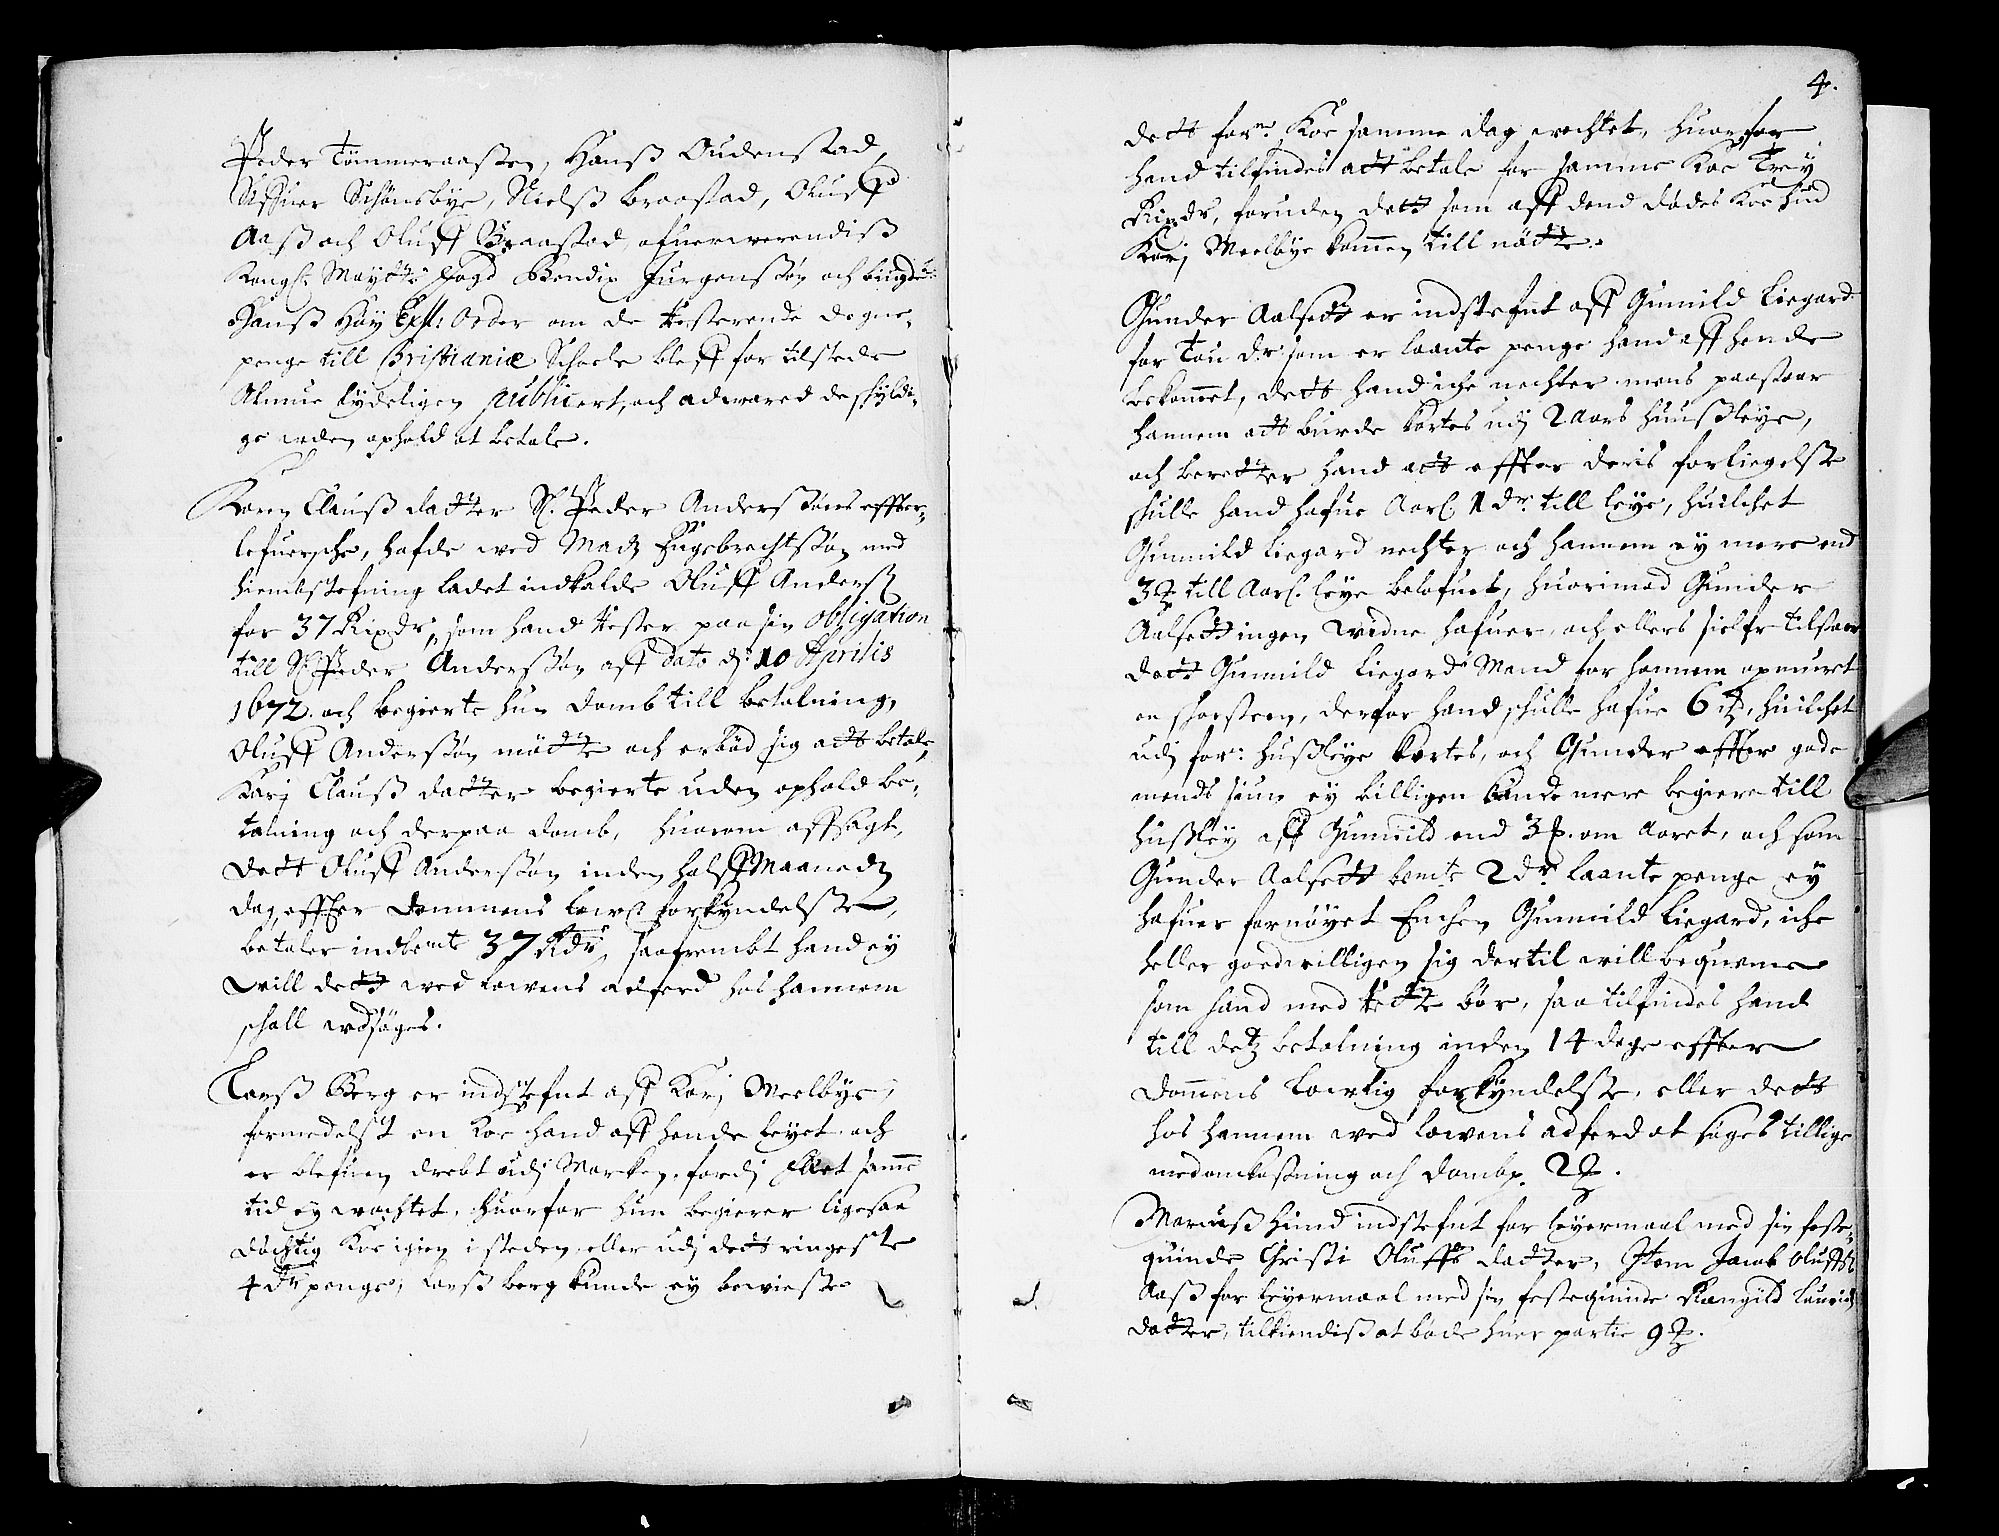 Peder Tømmeraasen, Hanß Oudenstad,
Siffuer Schönsbye, Nielß Braastad, Oluff
Aaß och Oluff Braastad, ofuerwerendiß
Kongl: Maytts Fogd Bendix Jurgenssøn och bøygde
Hanß Høy Exll: Order om de Resterende degne-
penge till Christianiæ Schoele bleff for tilstede
Almue lydeligen publicert, och adwared de skyldi-
ge uden ophold at betale.
Karj Clauß datter Sl. Peder Anderssøns effter-
lefuersche, hafde wed Madz Engebrechtssøn med
hiembstefning ladet indkalde Oluff Anderß
for 37 Rixdr, som hand Rester paa sin obligation
till Sl Peder Anderssøn aff dato d: 10 Aprilis
1672. och begierte hun domb till betalning,
Oluff Anderssøn møtte och erbød sig att betale,
Karj Clauß datter begierte uden ophold be-
talning och derpaa domb, huorom affsagt,
dett Oluff Anderssøn inden halff Maanedz
dag effter dommens lowl. forkyndelße,
betaler indbemte 37 Rdr, saafrembt hand ey
will dett wed lowens adferd hos hannem
schall udsøges.
Larß Berg er indstefnt aff Karj Meelbye,
formedelst en Koe hand aff hende leyet och
er blefuen drebt udj Marken, fordj samme
tid ey wachtet, huorfor hun begierer ligesaa
døchtig Koe igien i steden, eller udj dett ringeste
4 dr penge, Larß berg kunde ey bewieße
4.
dett forne Koe samme dag wachtet, huorfor
hand tilfindes att betale for samme Koe Trey
Rixdr, foruden dett som aff dend dødes Koe hud
Karj Meelbye kommen till nøtte.
Gunder Aalsett er indstefnt aff Gunnild Liegard
for Tou dr som er laante penge hand aff hende
bekommet, dett hand iche nechter mens paastaar
hannem att burde kortes udj 2 aars huußleye,
och beretter hand att effter deris forliegelße
schulle hand hafue Aarl. 1 dr till leye, huilchet
Gunnild Liegard nechter och hannem ey mere end
3 ß till Aarl. leye belofuet, huorimod Gunder
Aalsett ingen Widne hafuer, och ellers sielf tilstaar
dett Gunnild Liegards Mand for hannem opmuret
en skorsteen, derfor hand schulle hafue 6 , huilchet
udj for: hußleye kortes, och Gunder effter gode
mends siun ey billigen kunde mere begiere till
hußley aff Gunnild end 3 . om Aaret, och som
Gunder Aalsett bemte 2 dr laante penge ey
hafuer fornøyet Enchen Gunnild Liegard, iche
heller goedwilligen sig dertil will beqweme
som hand med Rette bør, saa tilfindes hand
till detz betalning inden 14 dage effter
dommens lowlig forkyndelße, eller dett
hos hannem wed lowens adferd at søges tillige
med omkostning och dombp. 2 .
Marcuß Hund indstefnt for leyermaal med sin feste-
quinde Christi Oluffs datter, Item Jacob Oluffß
Aaß for leyermaal med sin festequinde Rangild Lauridz
datter, tilkiendiß at bøde huer partie 9 .